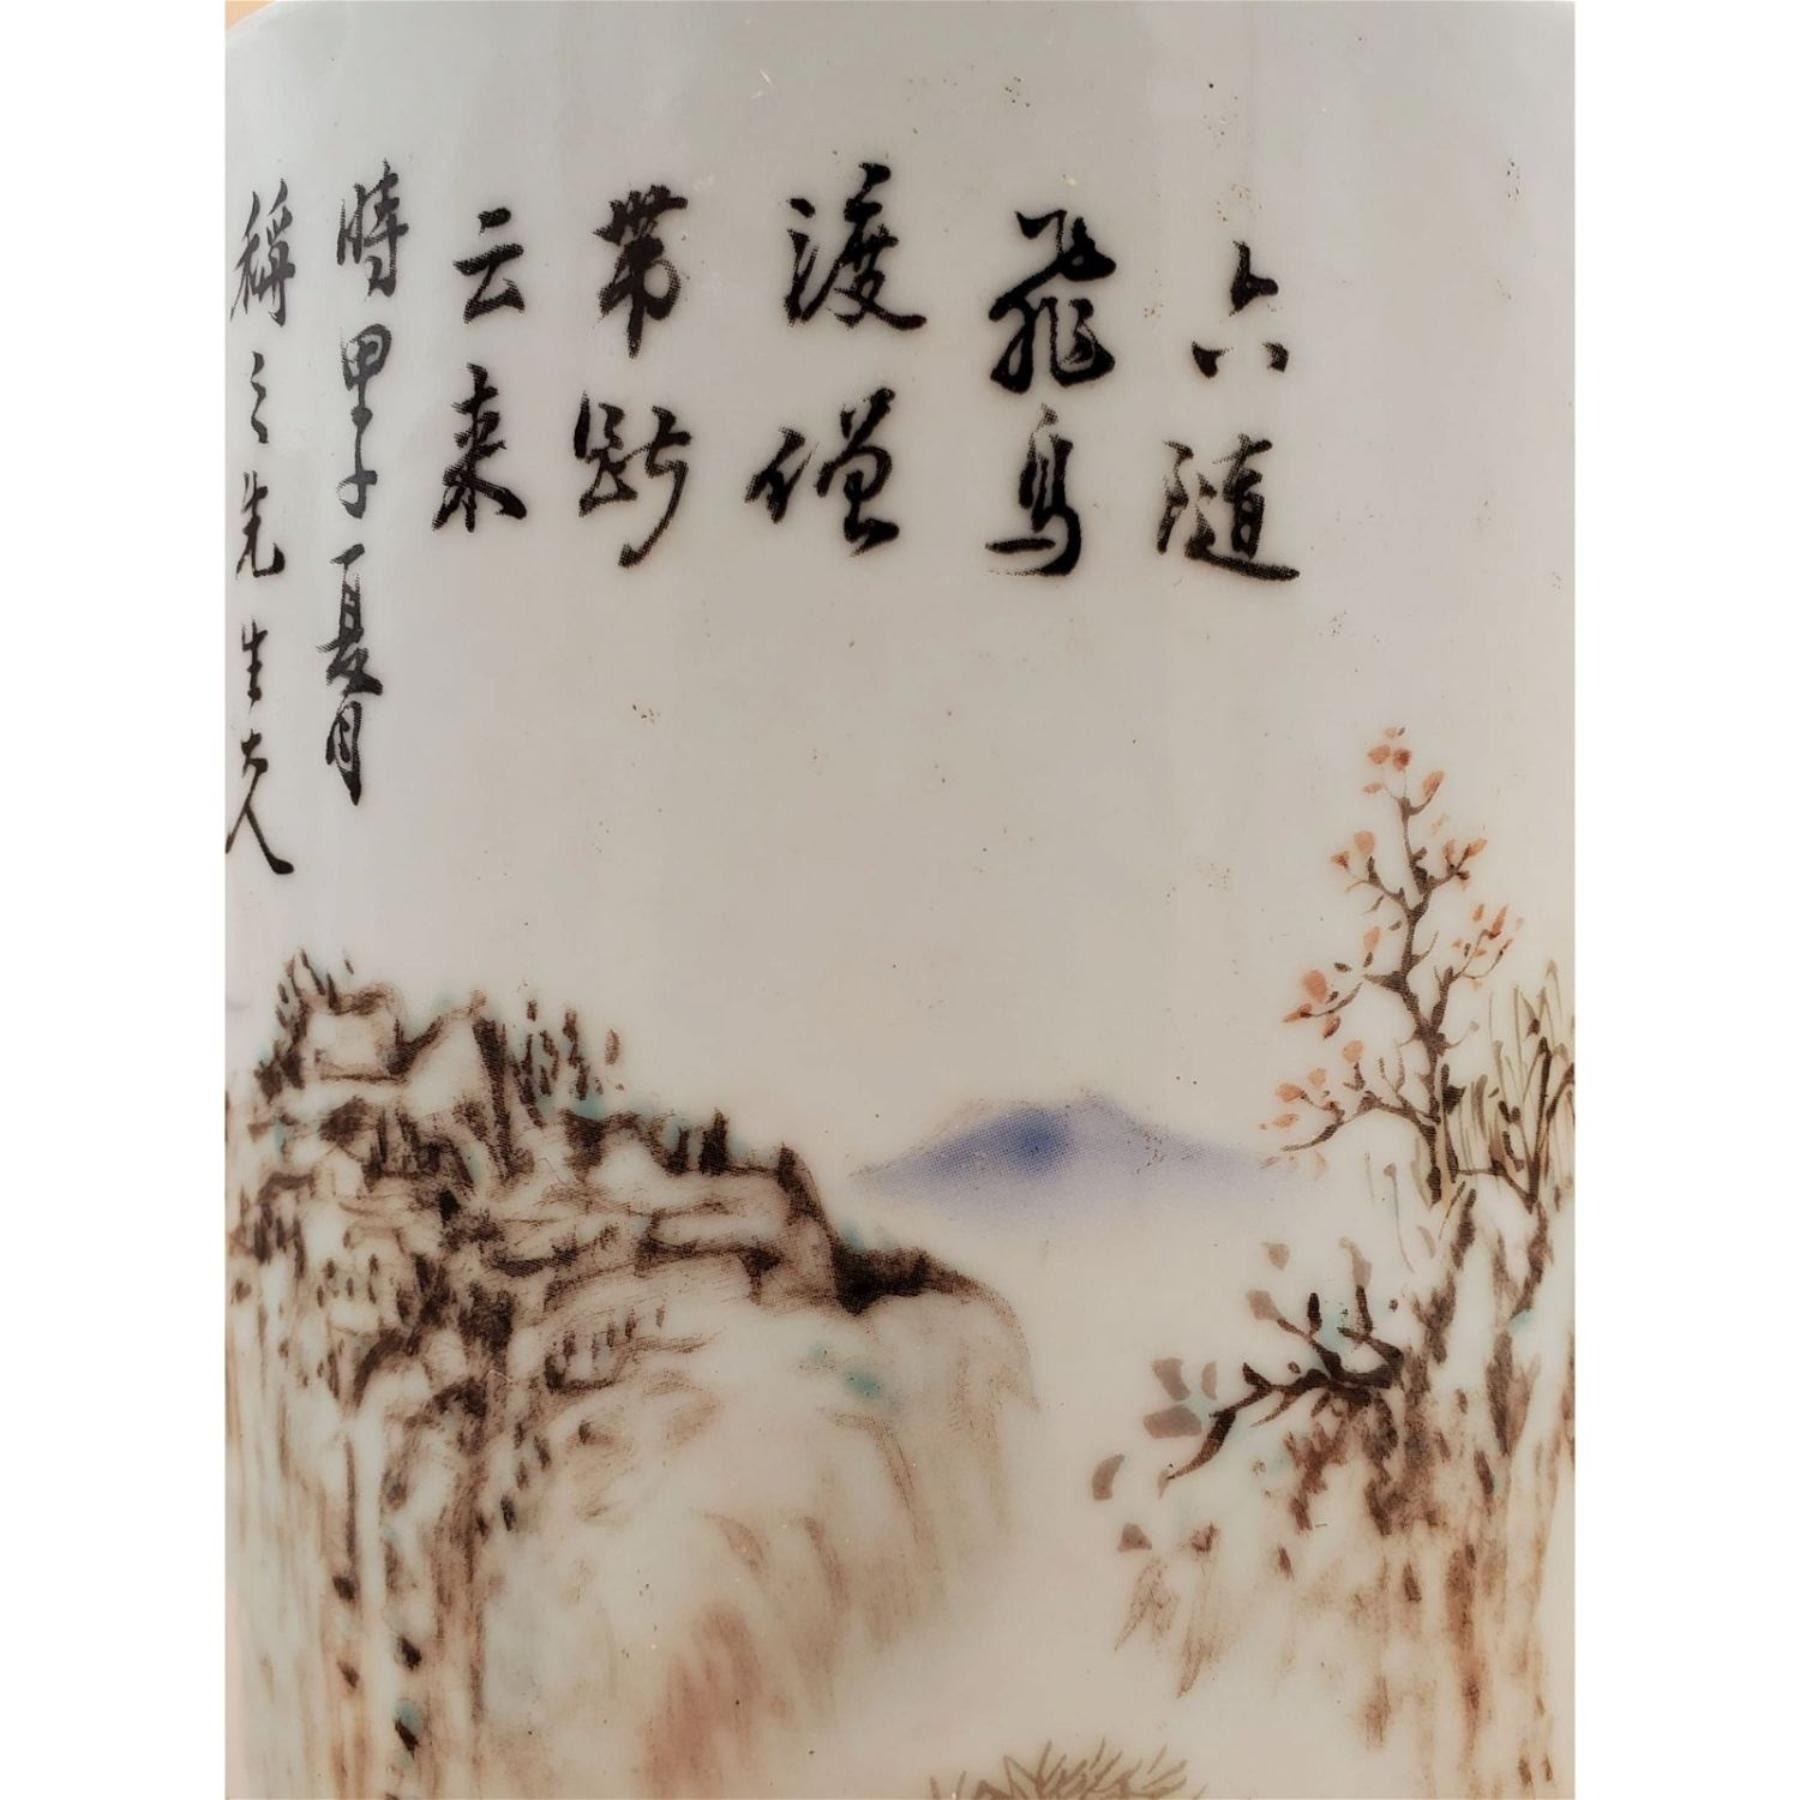 六隨
飛鳥
渡僧
帶斷
云来
時甲子夏月
稱之先生大人